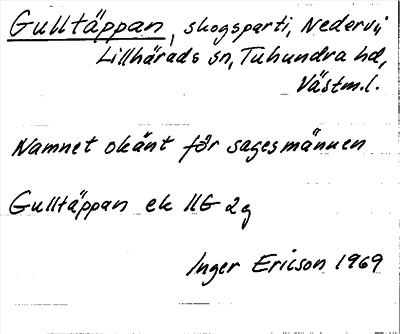 Gulltäppan, skogsparti, Nedervi,
Lillhärads sn, Tuhundra hd,
Västm.l.
Namnet okänt för sagesmännen
Gulltäppan ek 11G 2g
Inger Ericson 1969